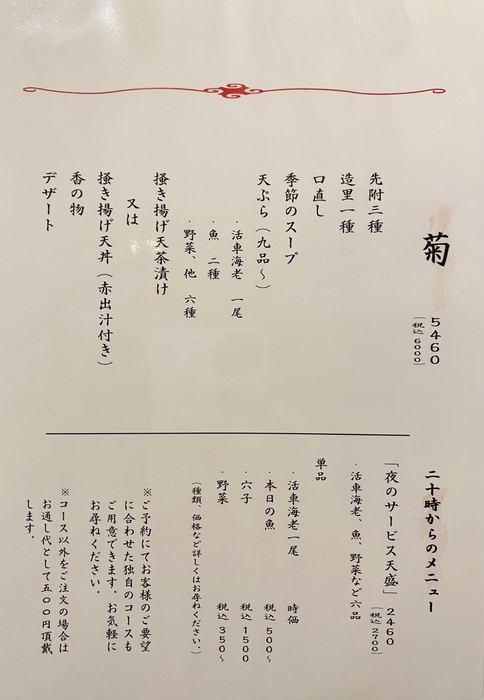 菊
5460
(税込 6000)
先附三種
造里一種
口直し
季節のスープ
天ぷら（九品〜）
・活車海老 一尾
・魚 二種
・野菜、他 六種
掻き揚げ天茶漬け
又は
掻き揚げ天丼（赤出汁付き）
香の物
デザート
二十時からのメニュー
「夜のサービス天盛」2460
(税込 2700)
・活車海老、魚、野菜など六品
単品
・活車海老一尾 時価
・本日の魚 税込 500〜
・穴子 税込 1500
・野菜 税込 350〜
(種類、価格など詳しくはお尋ねください。)
※ご予約にてお客様のご要望
に合わせた独自のコースも
ご用意できます。お気軽に
お尋ねください。
※コース以外をご注文の場合は
お通し代として五〇〇円頂戴
します。